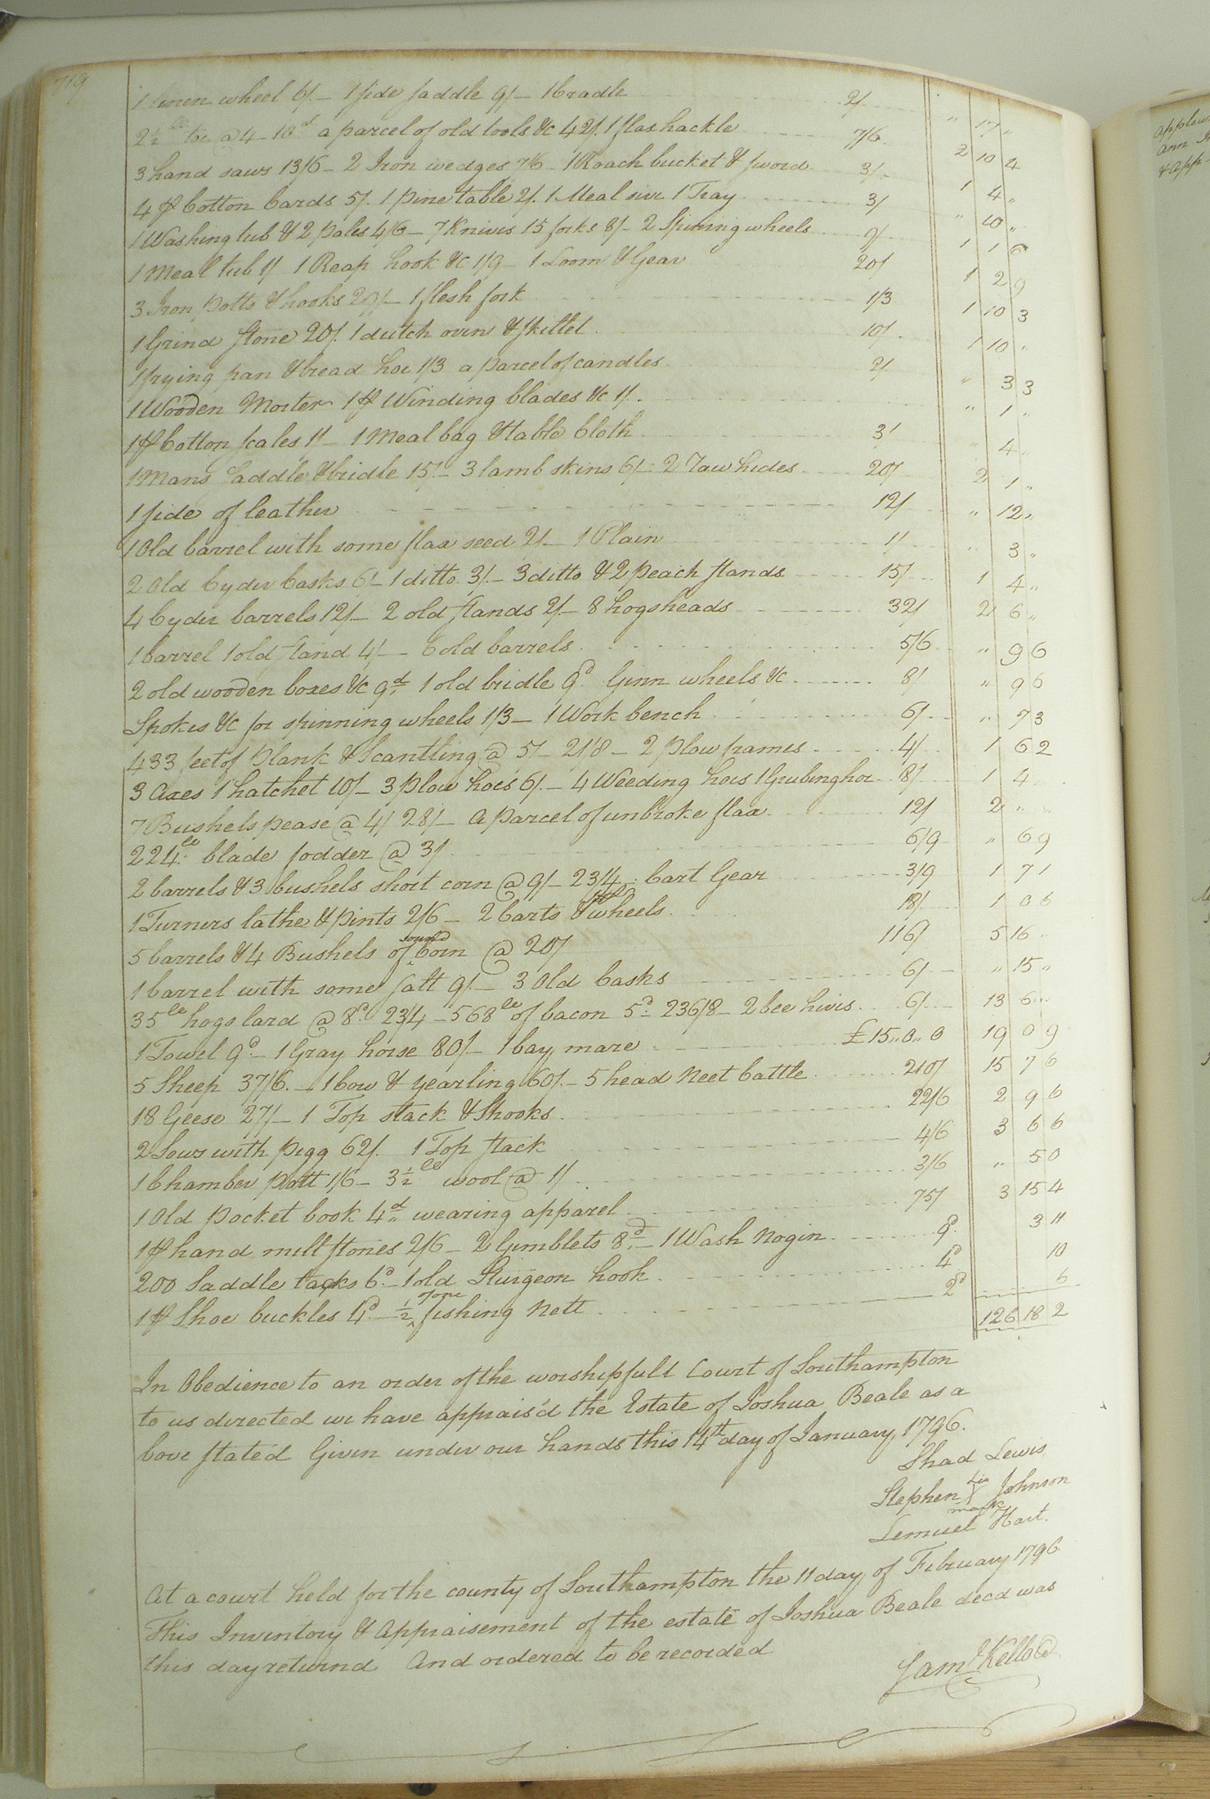 719
1 linen wheel 6/_ 1 side saddle 9/_ 1 Cradle 2/ " 17 "
2½ lb @ 4_10d a parcel of old tools &c 42/ 1 flax hackle 7/6 2 10 4
3 hand saws 13/6_ 2 Iron wedges 7/6_ 1 Roach bucket & sword 3/_ 1 4 "
4 pr Cotton Cards 5/. 1 pine table 2/. 1 Meal sive 1 Tray 3/ " 10 "
1 Washing tub & 2 pales 4/6_ 7 Knives 15 forks 8/_ 2 Spinning wheels 9/ 1 1 6
1 Meal tub 1/ 1 Reap hook &c 1/9_ 1 Loom & Gear 20/ 1 2 9
3 Iron potts & hooks 29/_ 1 flesh fork 1/3 1 10 3
1 Grind stone 20/. 1 dutch oven & skillet 10/. 1 10 "
1 frying pan & bread hoe 1/3 a parcel of candles 2/ " 3 3
1 Wooden Morter 1 pr Winding blades &c 1/. " 1 "
1 pr Cotton scales 1/_ 1 Meal bag & table Cloth 3/ " 4 "
1 Mans Saddle & bridle 15/_ 3 lamb skins 6/_ 2 Taw hides 20/ 2 1 "
1 side of leather 12/ " 12 "
1 Old barrel with some flax seed 2/_ 1 Plain 1/ " 3 "
2 Old Cyder Casks 6/_ 1 ditto 3/_ 3 ditto & 2 peach stands 15/ 1 4 "
4 Cyder barrels 12/_ 2 old stands 2/_ 8 hogsheads 32/ 2 6 "
1 barrel 1 old stand 4/_ 6 old barrels 5/6 " 9 6
2 old wooden boxes &c 9d 1 old bridle 9d Ginn wheels &c 8/ " 9 6
Spokes &c for spinning wheels 1/3_ 1 Work bench 6/ " 7 3
433 feet of Plank & Scantling @ 5/_ 21/8_ 2 plow frames 4/ 1 6 2
3 Axes 1 hatchet 10/_ 3 plow hoes 6/_ 4 Weeding hoes 1 Grubing hoe 8/ 1 4
7 Bushels pease @ 4/ 28/_ a parcel of unbroke flax 12/ 2 " "
224 lb blade fodder @ 3/ 6/9 " 6 9
2 barrels & 3 bushels short corn @ 9/_ 23/4 Cart Gear 3/9 1 7 1
1 Turners lathe & pints 2/6_ 2 Carts & wheels 18/ 1 0 6
5 barrels & 4 Bushels of sound Corn @ 20/ 116/ 5 16
1 barrel with some salt 9/_ 3 Old Casks 6/_ " 15 "
35 lb hogs lard @ 8d 23/4_ 568 lb of bacon 5d 236/8_ 2 bee hives 6/_ 13 6 "
1 Towel 9d_ 1 Gray horse 80/_ 1 bay mare £15..0..0 19 0 9
5 Sheep 37/6._ 1 Cow & yearling 60/_ 5 head Neet Cattle 210/ 15 7 6
18 Geese 27/_ 1 Top stack & Shooks 22/6 2 9 6
2 Sows with pigg 62/. 1 Top stack 4/6 3 6 6
1 Chamber pott 1/6_ 3½ lb wool @ 1/ 3/6 " 5 0
1 Old pocket book 4d wearing apparel 75/ 3 15 4
1 pr hand mill stones 2/6_ 2 Gimblets 8d_ 1 Wash Nogin 9d 3 11
200 Saddle tacks 6d_ 1 old Sturgeon hook 4d 10
1 pr Shoe buckles 4d_ ½ of one fishing Nett 2d 6
126 18 2
In Obedience to an order of the worshipfull Court of Southampton
to us directed we have apprais'd the Estate of Joshua Beale as a
bove stated Given under our hands this 14th day of January 1796.
Shad Lewis
Stephen his X mark Johnson
Lemuel Hart.
At a court held for the county of Southampton the 11 day of February 1796
This Inventory & Appraisement of the estate of Joshua Beale decd was
this day returnd And ordered to be recorded
Saml Kello